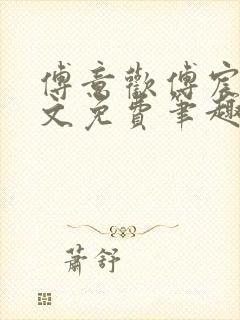 傅意歡傅宸
文免費筆趣
蕭舒